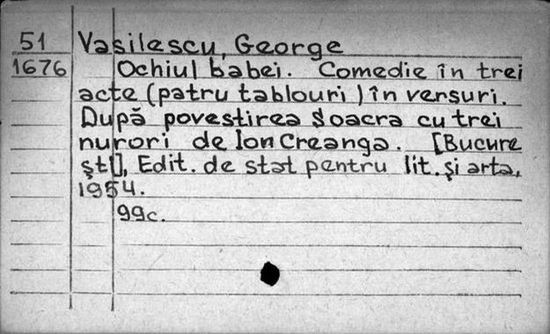 51 Vasilescu, George
1676 Ochiul babei. Comedie în trei
acte (patru tablouri) în versuri.
După povestirea Soacra cu trei
nurori de Ion Creanga. [Bucure
ști], Edit. de stat pentru lit. și arta,
1954.
99c.